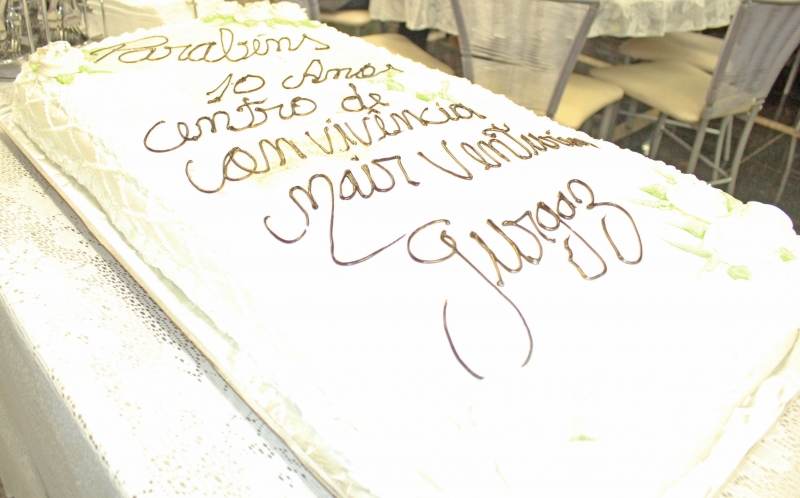 Parabéns
10 Anos
Centro de
Convivência
Mair Ventura
Gurgaz